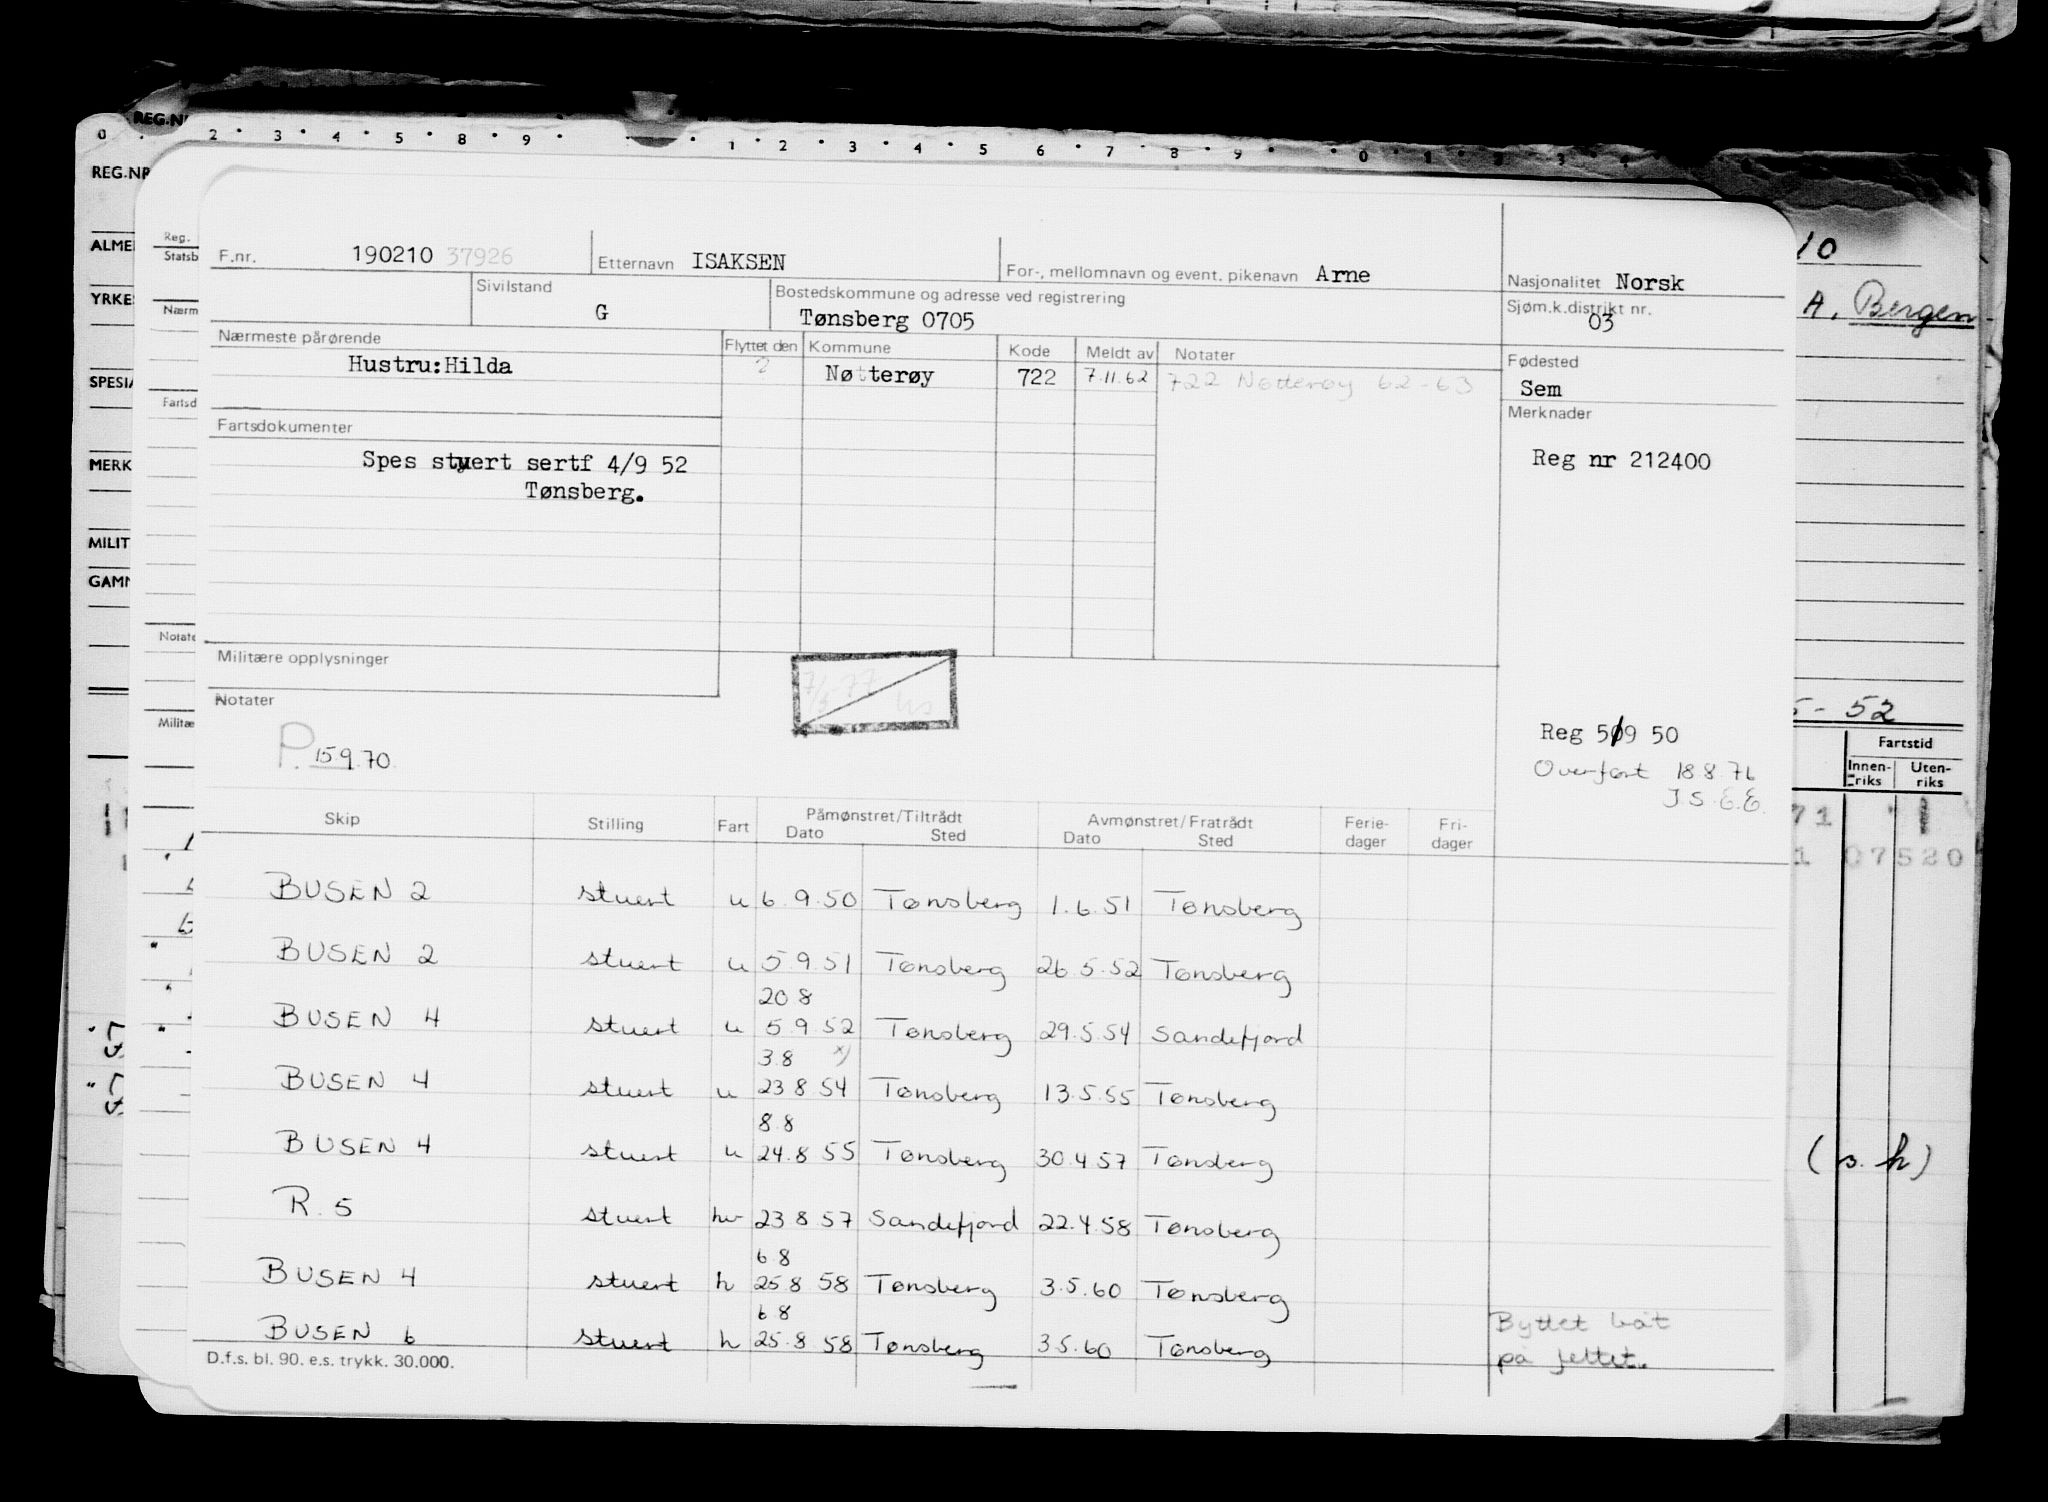 REG.NR
0 2 3 4 5 8 9 1 2 3 4 5 6 7 8 9 0 1 2 3
REG.NR
ALME
YRKES
SPESIA
MERK
MILIT
GAMM
Reg.
Statsb
Nærm
Fartsd
Notate
Militæ
10
A. Bergen
5-52
Fartstid
Innen-riks Uten-riks
71
1 07520
(s. h)
F.nr. 190210 37926 Etternavn ISAKSEN For-, mellomnavn og event. pikenavn Arne Nasjonalitet Norsk
Sivilstand G Bostedskommune og adresse ved registrering Tønsberg 0705 Sjøm.k.distrikt nr. 03
Nærmeste pårørende Flyttet den Kommune Kode Meldt av Notater Fødested
Hustru:Hilda 2 Nøtterøy 722 7.11.62 722 Nøtterøy 62-63 Sem
Merknader
Fartsdokumenter
Spes stuert sertf 4/9 52 Reg nr 212400
Tønsberg.
Militære opplysninger
7/3-77 hs
Notater
Reg 5/9 50
P. 15.9.70. Overført 18.8.76
J.S.E.E.
Skip Stilling Fart Påmønstret/Tiltrådt Avmønstret/Fratrådt Ferie-dager Fri-dager
Dato Sted Dato Sted
BUSEN 2 stuert u 6.9.50 Tønsberg 1.6.51 Tønsberg
BUSEN 2 stuert u 5.9.51 Tønsberg 26.5.52 Tønsberg
20 8
BUSEN 4 stuert u 5 9 52 Tønsberg 29.5.54 Sandefjord
3.8 x)
BUSEN 4 stuert u 23 8 54 Tønsberg 13.5.55 Tønsberg
8.8
BUSEN 4 stuert u 24.8 55 Tønsberg 30.4 57 Tønsberg
R. 5 stuert hv 23 8 57 Sandefjord 22.4.58 Tønsberg
6 8
BUSEN 4 stuert h 25.8 58 Tønsberg 3.5.60 Tønsberg
6 8
BUSEN 6 stuert h 25.8 58 Tønsberg 3.5.60 Tønsberg Byttet båt
på feltet.
D.f.s. bl. 90. e.s. trykk. 30.000.